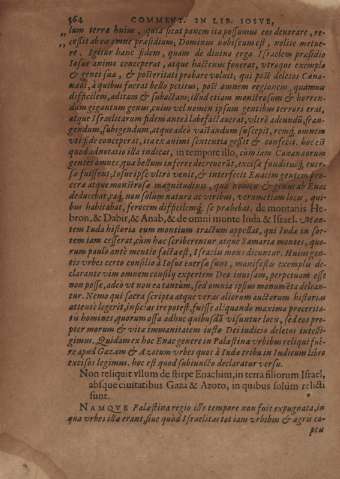 364 COMMENT. IN LIB. IOSVE,
lum terræ huius, quia sicut panem ita possumus eos deuorare, re-
cessit ab eis omne præsidium, Dominus nobiscum est, nolite metue-
re. Igitur hanc fidem, quam de diuina erga Israelem præsidio
Iosue animo conceperat, atque hactenus fouerat, vtroque exemplo
& genti suæ, & posteritati probare voluit, qui post deletos Cana-
næos, à quibus fuerat bello petitus, post autem regionem, quamuis
difficilem, aditam & subactam, illud etiam monstrosum & horren-
dum gigantum genus, quius vel nomen ipsum gentibus terrori erat,
atque Israelitarum fidem antea labefactauerat, vltrò adeundū, fran-
gendum, subigendum, atque adeò vastandum suscepit, remq́; omnem
vti fide conceperat, ita ex animi sententia gessit & confecit. hoc est
quod adnotatio illa indicat, in tempore illo, cum iam Cananæorum
gentes omnes, quæ bellum inferre decreuerāt, excisæ funditusq́; euer-
sæ fuissent, Iosue ipse vltrò venit, & interfecit Enacim gentem pro-
cera atque monstrosa magnitudine, quæ nomen & genus ab Enac
deducebat, eaq́; non solum natura ac viribus, verumetiam locis, qui-
bus habitabat, ferocem difficilemq́; se præbebat, de montanis He-
bron, & Dabir, & Anab, & de omni monte Iuda & Israel. Mon-
tem Iuda historia eum montium tractum appellat, qui Iudæ in sor-
tem iam cesserat, cùm hæc scriberentur, atque Samariæ montes, quo-
rum paulò antè mentio facta est, Israelis montes dicuntur. Huius gen-
tis vrbes certo consilio ab Iosue euersæ sunt, manifesto exemplo de-
clarante vim omnem consilij expertem Dei inuisam, perpetuam esse
non posse, adeò vt non ea tantùm, sed omnia ipsius monumēta delean-
tur. Nemo qui sacra scripta atque veras aliorum auctorum historias
attentè legerit, inficias ire potest, fuisse aliquando maxima procerita-
tis homines, quorum ossa adhuc quibusdā visuntur locis, sed eos pro-
pter morum & vitæ immanitatem iusto Dei iudicio deletos intelli-
gimus. Quidam ex hoc Enac genere in Palæstinæ vrbibus reliqui fue-
re apud Gazam & Azotum vrbes quæ à Iudæ tribu in Iudicum libro
excisas legimus. hoc est quod subiunctio declaratur versu.
Non reliquit vllum de stirpe Enacim, in terra filiorum Israel,
absque ciuitatibus Gaza & Azoto, in quibus solùm relicti
sunt.
NAMQVE Palæstina regio illo tempore non fuit expugnata, in
qua vrbes illæ erant, siue quòd Israelitæ tot iam vrbibus & agris ca-
ptis